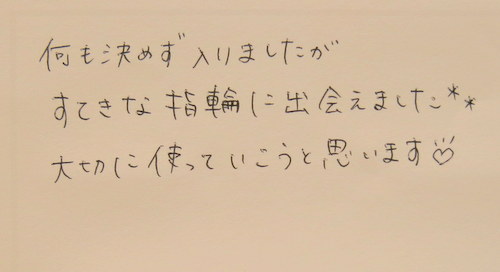 何も決めず入りましたが
すてきな指輪に出会えました**
大切に使っていこうと思います♡